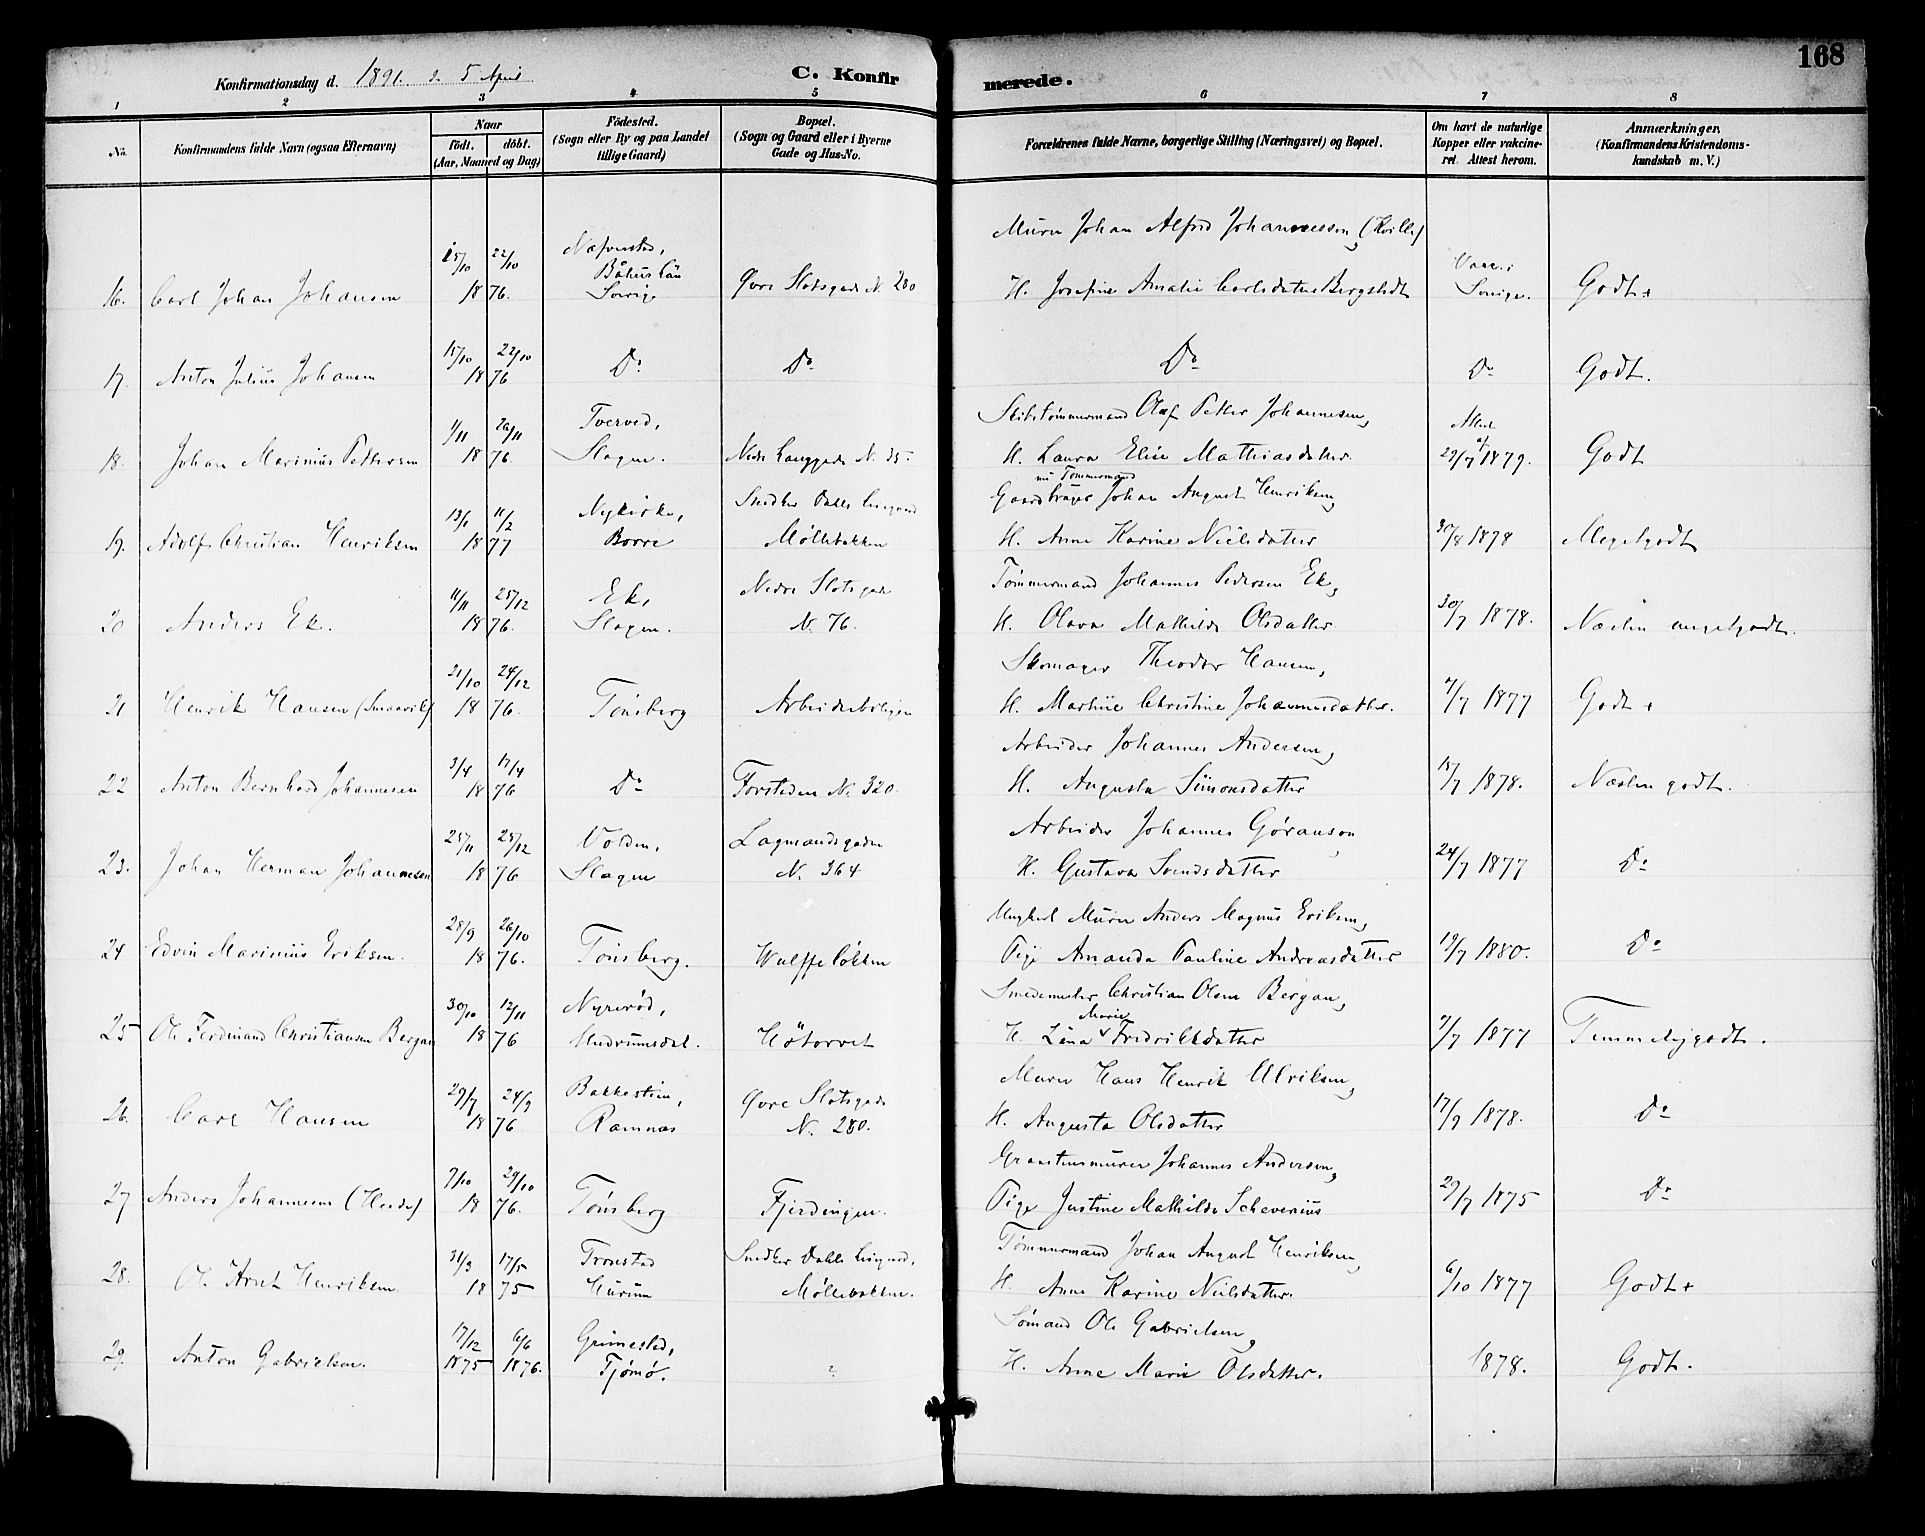 168
Konfirmationsdag d. 1891. d. 5 April
C. Konfirmerede.
1 2 3 4 5 6 7 8
No.
Konfirmandens fulde Navn (ogsaa Efternavn)
Naar
födt. döbt.
(Aar, Maaned og Dag)
Födested.
(Sogn eller By og paa Landet
tillige Gaard)
Bopæl.
(Sogn og Gaard eller i Byerne
Gade og Hus-No.
Forældrenes fulde Navne, borgerlige Stilling (Næringsvei) og Bopæl.
Om havt de naturlige
Kopper eller vakcine-
ret. Attest herom.
Anmærkninger.
(Konfirmandens Kristendoms-
kundskab m. V.)
Murer Johan Alfred Johannessen (Kville)
15/10 22/10 Båhus Län Vacc. i
16. Carl Johan Johansen 18 76. Sverige Øvre Slotsgade N. 280 H. Josefine Amalie Carlsdatter Bergstedt Sverige. Godt +
15/10 22/10
17. Anton Julius Johansen 18 76 Do Do Do Do Godt.
1/11 26/11 Tverved, Skibstømmermand Olaf Petter Johannesen, Attest
18. Johan Marinius Pettersen 18 76. Slagen. Nedre Langgade N. 35. H. Laura Elise Mathiasdatter. 29/7 1879. Godt
nu Tømmermand
13/1 11/2 Nykirke, Snedker Dahls Enegaard Gaardbruger Johan August Henriksen,
19. Adolf Christian Henriksen 18 77 Borre Møllebakken H. Anne Karine Nielsdatter 30/8 1878 Megetgodt
11/11 25/12 Ek, Nedre Slotsgade Tømmermand Johannes Pedersen Ek,
20 Anders Ek. 18 76. Slagen. N. 76. H. Olava Mathilde Olsdatter 30/7 1878. Næsten megetgodt.
21/10 24/12 Skomager Theodor Hansen,
21 Henrik Hansen (Smaavik) 18 76. Tønsberg Arbeiderboligen H. Martine Christine Johannesdatter. 7/7 1877 Godt +
3/4 17/4 Arbeider Johannes Andersen,
22 Anton Bernhard Johannesen 18 76 Do Forstaden N. 320. H. Augusta Simonsdatter 15/7 1878. Næsten godt.
25/11 25/12 Volden, Lagmandsgaden Arbeider Johannes Göranson,
23. Johan Herman Johannesen 18 76 Slagen N. 364 H. Gustava Svendsdatter 24/7 1877 Do
28/9 26/10 Ungkarl Murer Anders Magnus Eriksen,
24 Edvin Marinius Eriksen. 18 76. Tønsberg. Wulffeløkken Pige Amanda Pauline Andreasdatter 19/7 1880. Do
30/10 12/11 Nyrerød, Smedemester Christian Olsen Bergan,
Marie
25 Ole Ferdinand Christiansen Bergan 18 76 Undrumsdal. Høtorvet H. Lina Fredrikkdatter 7/7 1877 Temmeligodt.
29/7 24/9 Bakkestien, Øvre Slotsgade Murer Hans Henrik Ulriksen,
26. Carl Hansen 18 76 Ramnæs N. 280. H. Augusta Olsdatter 17/9 1878. Do
7/10 29/10 Granitensmurer Johannes Andersen,
27 Anders Johannesen (Herde) 18 76. Tønsberg Fjerdingen. Pige Justine Mathilde Schevenius 29/7 1875 Do
31/3 17/5 Tronstad Snedker Dahls Enegaard, Tømmermand Johan August Henriksen,
28. Ole Arnt Henriksen 18 75 Hurum Møllebakken. H. Anne Karine Nielsdatter. 6/10 1877 Godt +
17/12 6/6 Grimestad, Sømand Ole Gabrielsen,
29. Anton Gabrielsen. 1875 1876. Tjømø. ? H. Anne Marie Olsdatter. 1878. Godt.